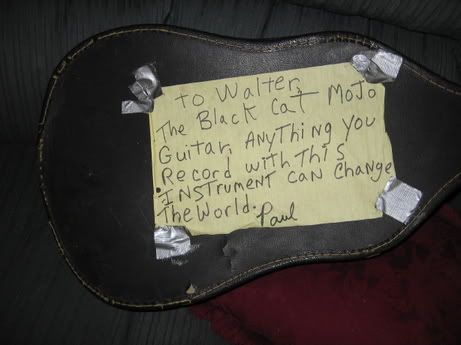 To Walter,
The Black Cat Mojo
Guitar, Anything you
Record with This
Instrument can change
The World. Paul